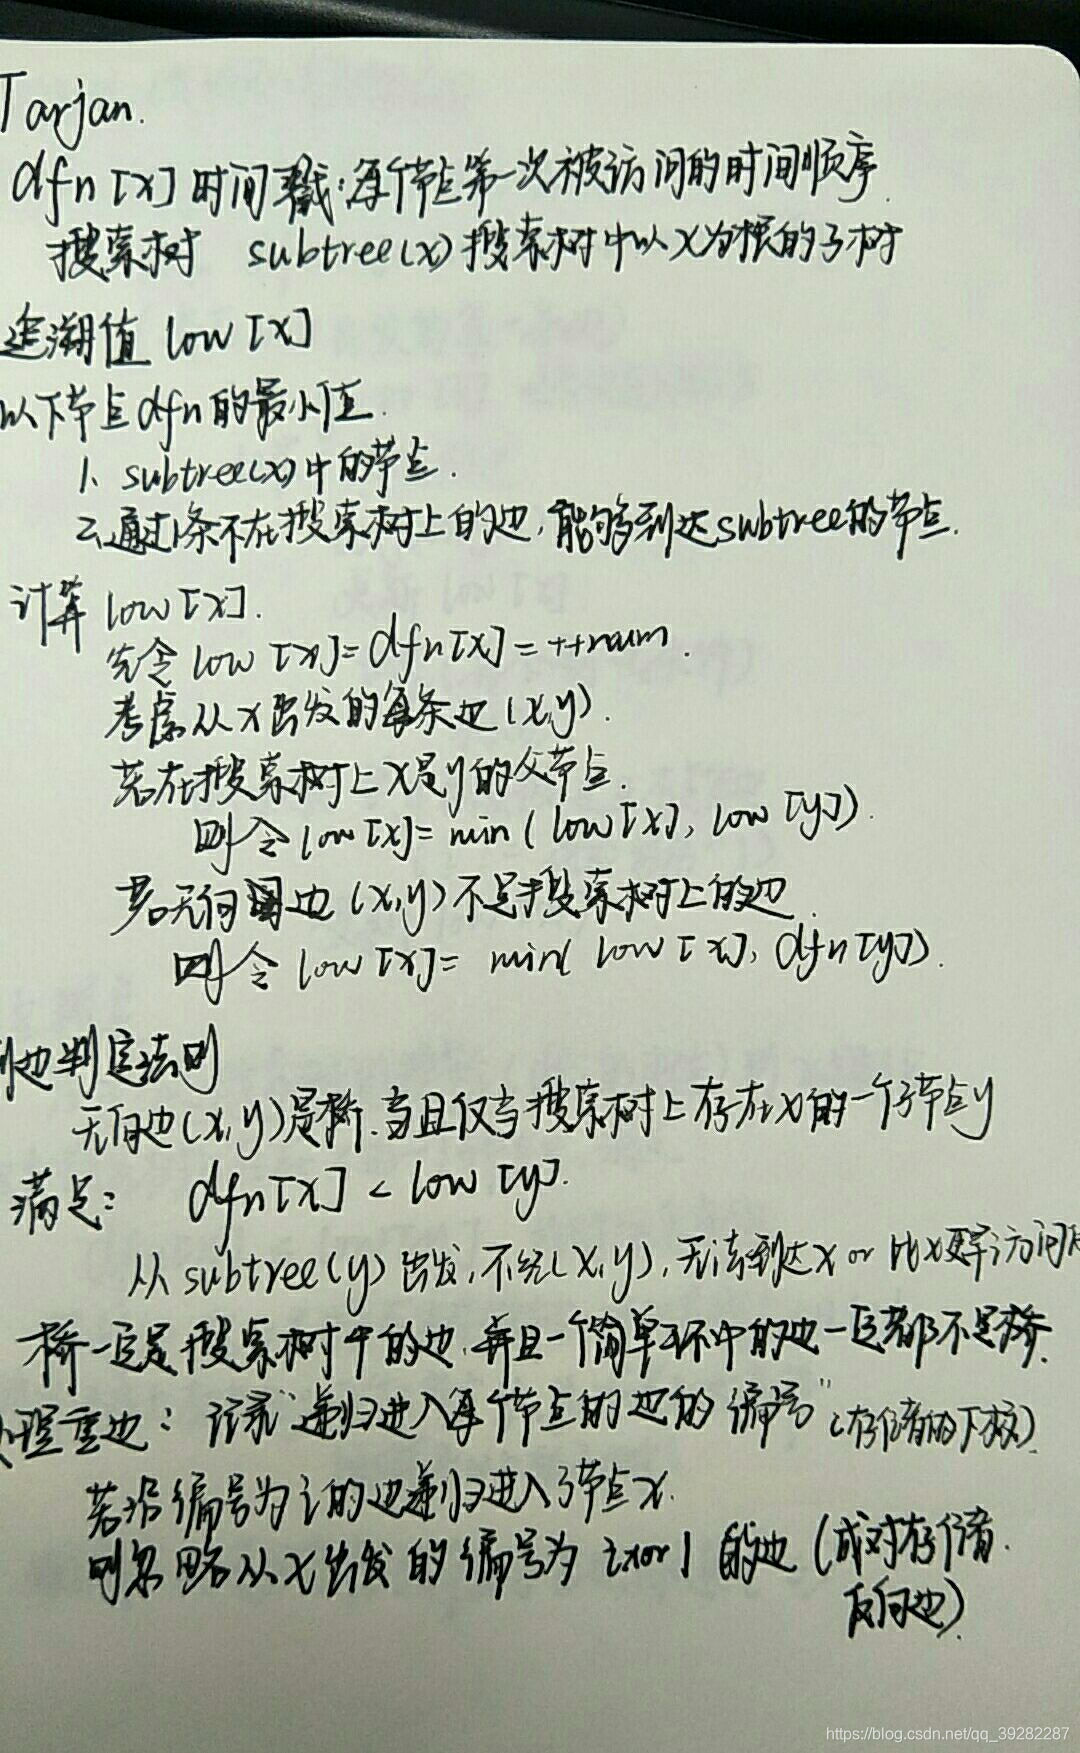 Tarjan.
dfn[x] 时间戳:每个节点第一次被访问的时间顺序
搜索树 subtree(x) 搜索树中以x为根的子树
追溯值 low[x]
以下节点dfn的最小值.
1. subtree(x)中的节点.
2.通过1条不在搜索树上的边,能够到达subtree的节点.
计算 low[x].
先令 low[x]=dfn[x]=++num.
考虑从x出发的每条边(x,y).
若在搜索树上x是y的父节点.
则令low[x]=min(low[x],low[y]).
若无向边(x,y)不是搜索树上的边.
则令low[x]=min(low[x],dfn[y]).
割边判定法则
无向边(x,y)是桥.当且仅当搜索树上存在x的一个子节点y
满足: dfn[x]<low[y].
从subtree(y)出发,不经(x,y),无法到达x or 比x更早访问
桥一定是搜索树中的边,并且一个简单环中的边一定都不是桥.
处理重边:记录"递归进入每个节点的边的编号"(存储的下标)
若沿编号为i的边递归进入子节点x.
则忽略从x出发的编号为i xor 1 的边(成对存储.
反向边)
https://blog.csdn.net/qq_39282287